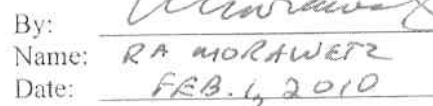 By:
Name: RA MORAWETZ
Date: FEB. 1, 2010